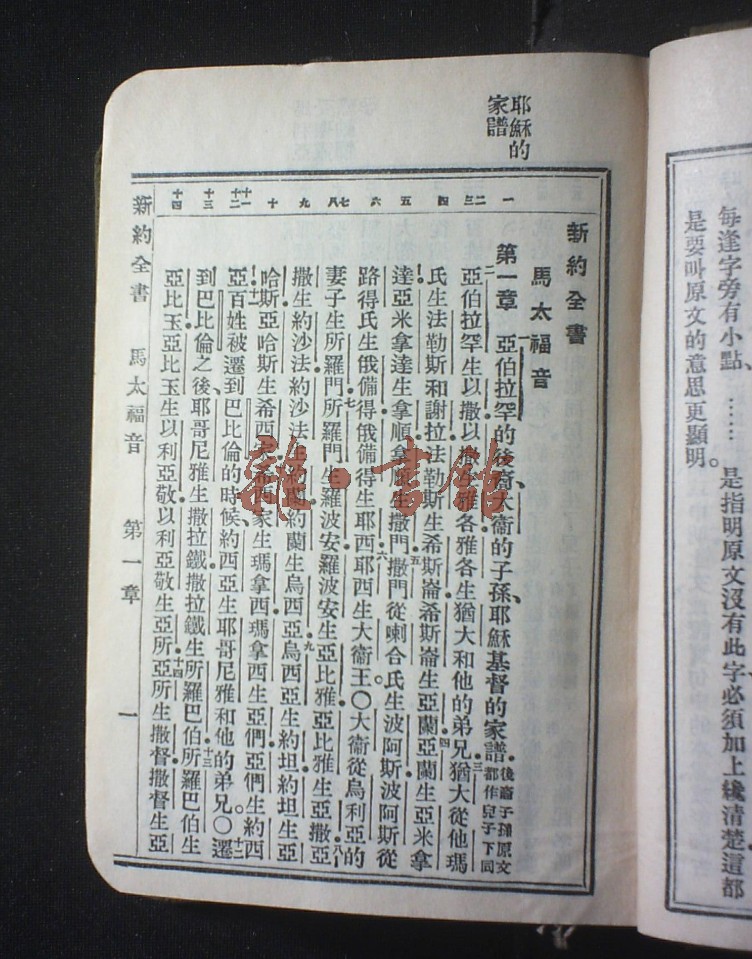 每逢字旁有小點、…… 是指明原文沒有此字必須加上纔清楚這都
是要叫原文的意思更顯明。
耶穌的
家譜
一 二 三 四 五 六 七 八 九 十 十一 十二 十三 十四
新約全書
馬太福音
第一章 一亞伯拉罕的後裔、大衛的子孫、耶穌基督的家譜．後裔子孫原文都作兒子下同
二亞伯拉罕生以撒．以撒生雅各．雅各生猶大和他的弟兄．三猶大從他瑪
氏生法勒斯和謝拉．法勒斯生希斯崙．希斯崙生亞蘭．四亞蘭生亞米拿
達．亞米拿達生拿順．拿順生撒門．五撒門從喇合氏生波阿斯．波阿斯從
路得氏生俄備得．俄備得生耶西．六耶西生大衛王。〇大衛從烏利亞的
妻子生所羅門．七所羅門生羅波安．羅波安生亞比雅．亞比雅生亞撒．八亞
撒生約沙法．約沙法生約蘭．約蘭生烏西亞．九烏西亞生約坦．約坦生亞
哈斯．亞哈斯生希西家．十希西家生瑪拿西．瑪拿西生亞們．亞們生約西
亞．十一百姓被遷到巴比倫的時候、約西亞生耶哥尼雅和他的弟兄。〇十二遷
到巴比倫之後、耶哥尼雅生撒拉鐵．撒拉鐵生所羅巴伯．十三所羅巴伯生
亞比玉．亞比玉生以利亞敬．以利亞敬生亞所．十四亞所生撒督．撒督生亞
新約全書 馬太福音 第一章 一
書館